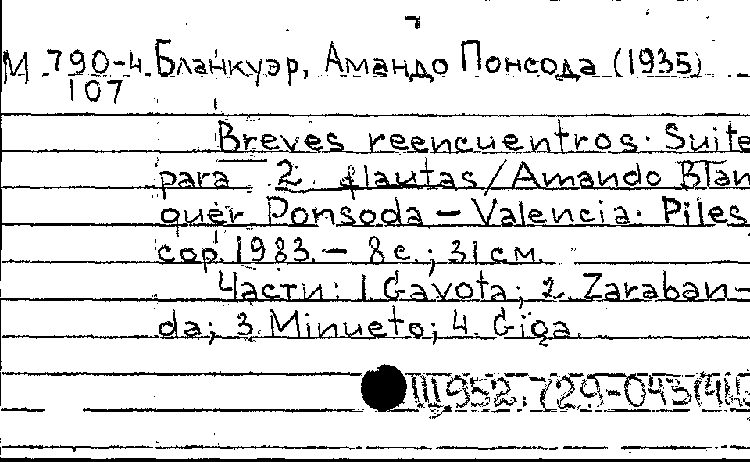 М 790-4 Бланкуэр, Амандо Понсода (1935)
107
Breves reencuentros. Suite
para 2 flautas/Amando Blan
quer Ponsoda – Valencia. Piles,
cop. 1983. – 8 с.; 31 см.
Части: 1. Gavota; 2. Zaraban-
da; 3. Minueto; 4. Giga.
Щ952.729-043(4И